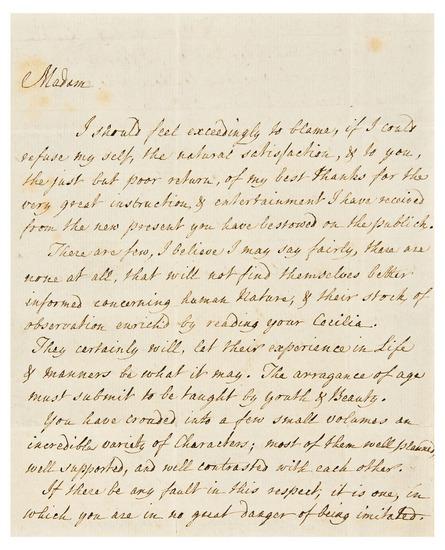 Madam
I should feel exceedingly to blame, if I could
refuse my self, the natural satisfaction, & to you,
the just but poor return, of my best thanks for the
very great instruction, & entertainment I have received
from the new present you have bestowed on the publick.
There are few, I believe I may say fairly, there are
none at all, that will not find themselves better
informed concerning human Nature, & their stock of
observation enrich'd by reading your Cecilia.
They certainly will, let their experience in Life
& manners be what it may. The arragance of age
must submit to be taught by youth & Beauty.
You have crouded into a few small volumes an
incredible variety of Characters; most of them well planned,
well supported, and well contrasted with each other.
If there be any fault in this respect, it is one, in
which you are in no great danger of being imitated.